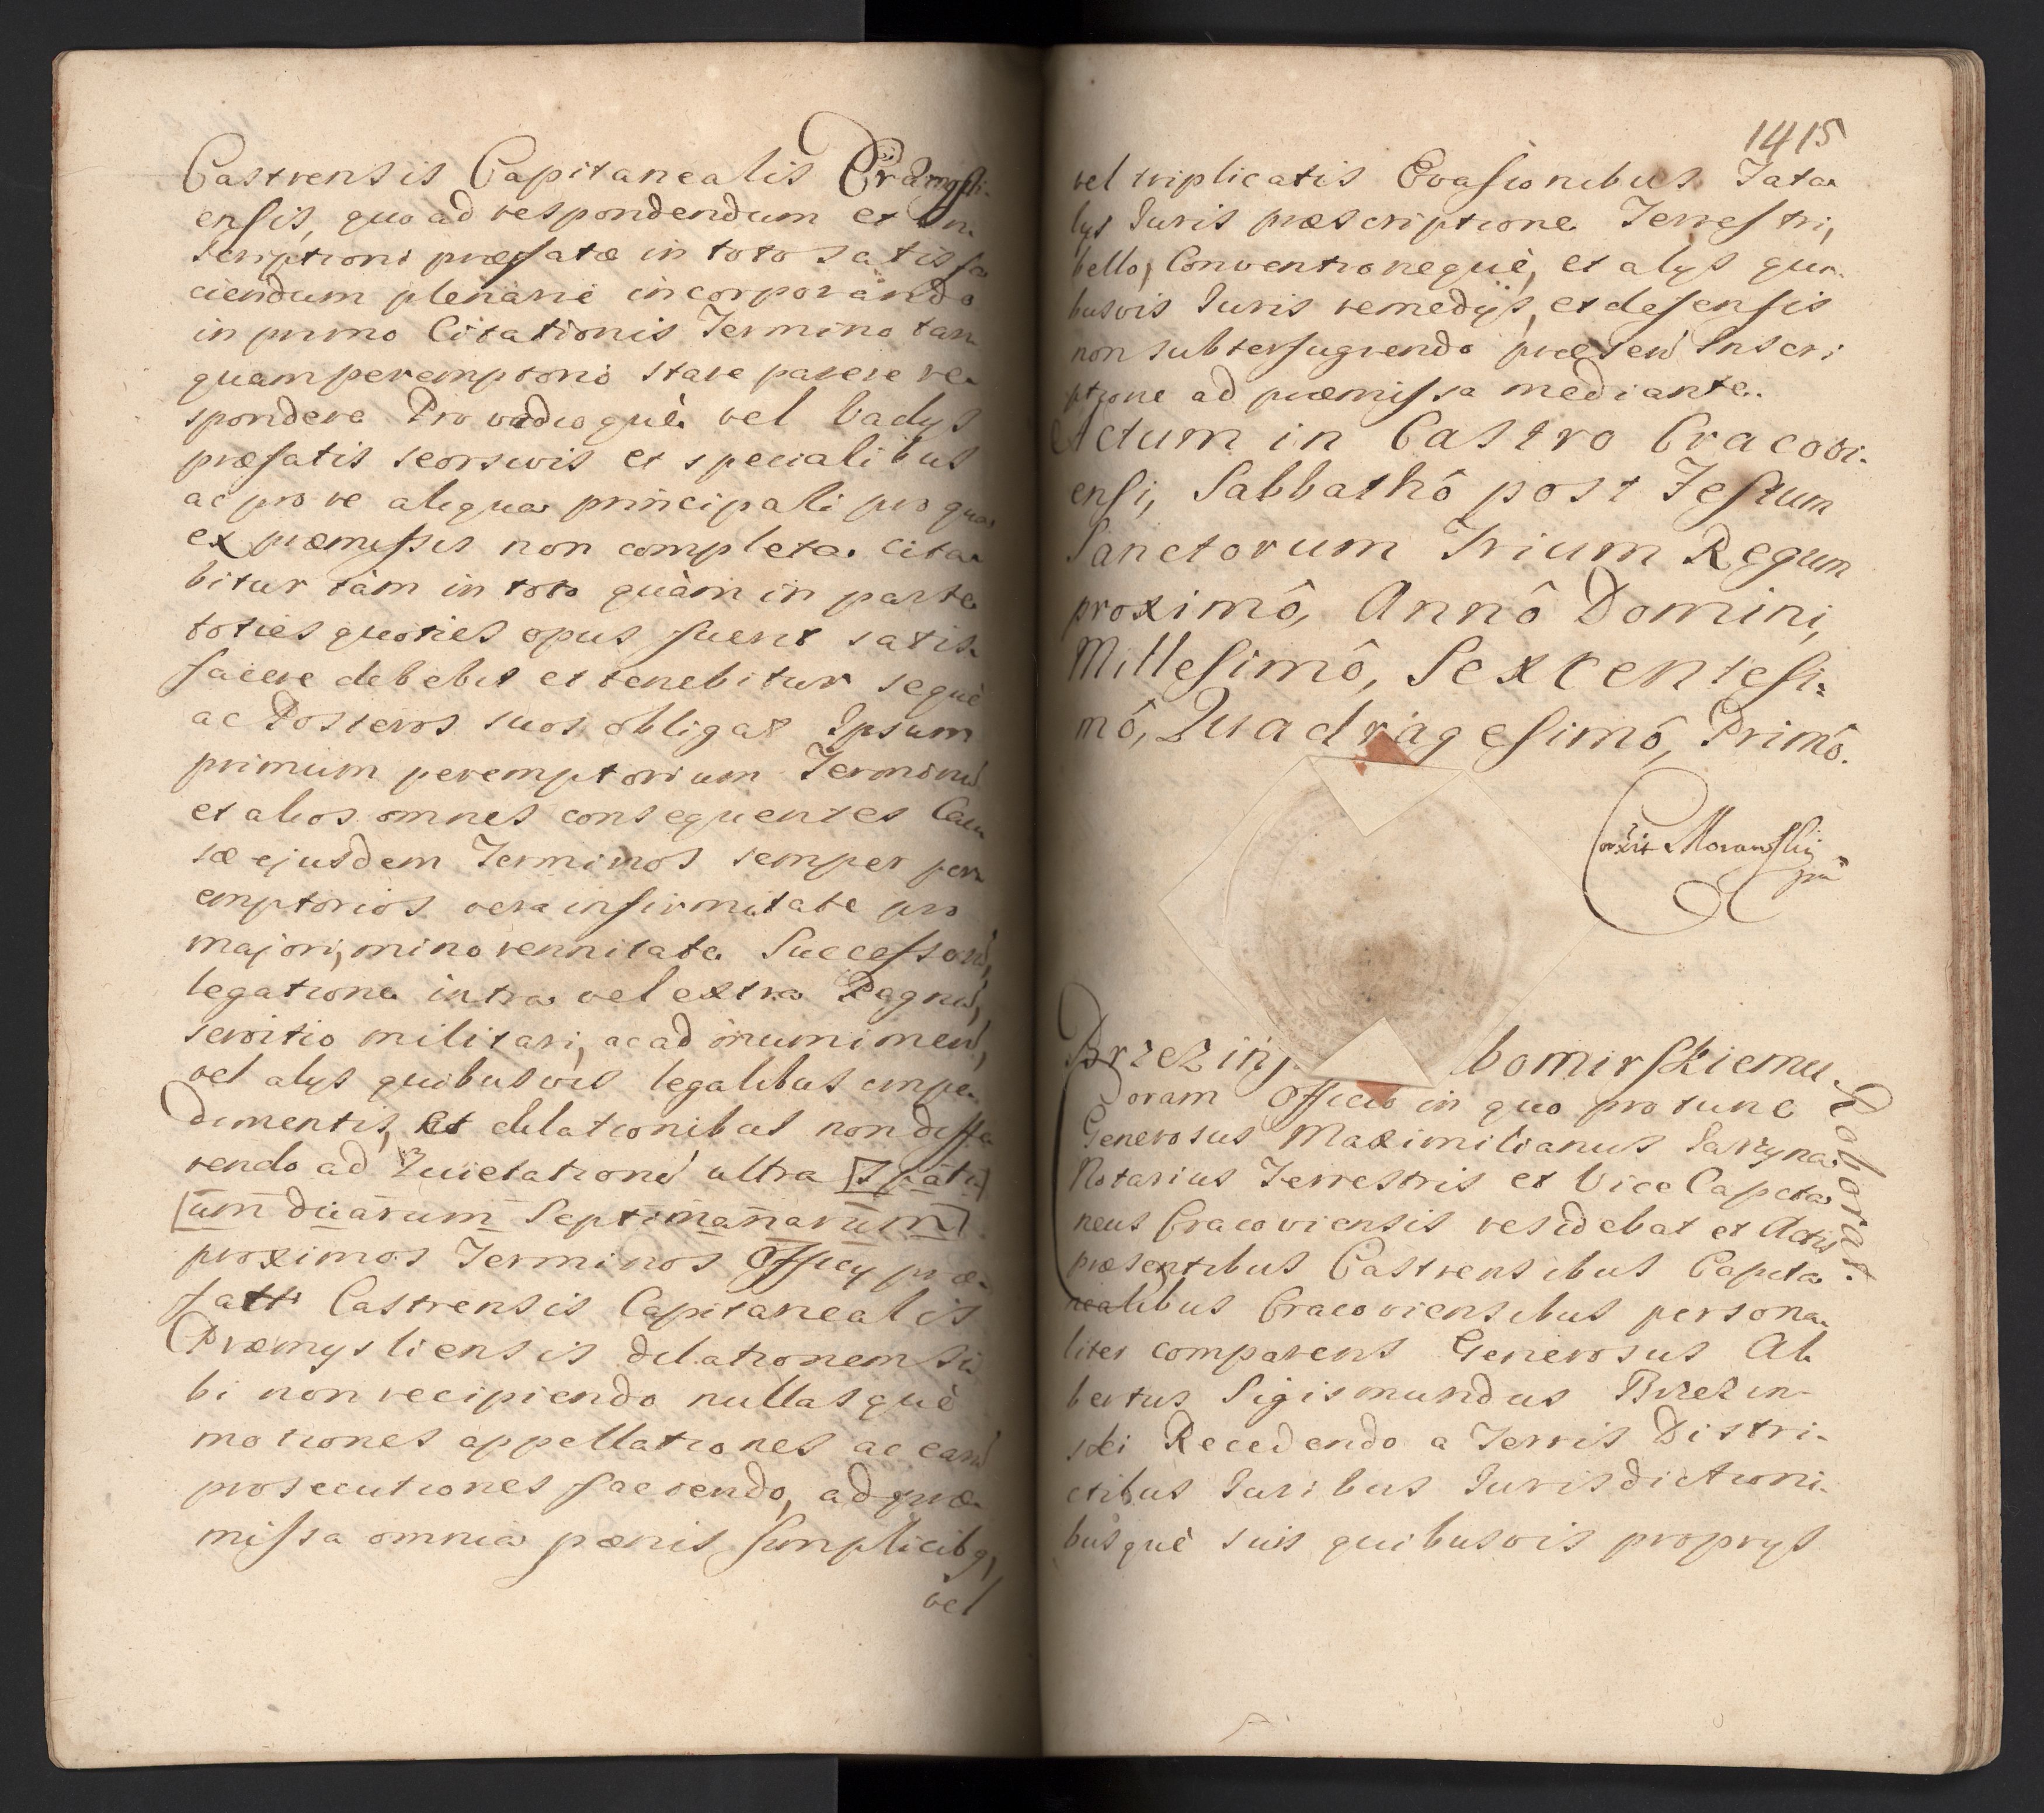 Castrensis Capitanealis Præmysli-
ensis, quo ad respondendum et In-
scriptioni præfatæ in toto satisfa
ciendum plenarie incorporando
in primo Citationis Termino tan
quam peremptorio stare parere re-
spondere Pro vadioquè vel Vadys
præfatis seorsivis et specialibus
ac pro re aliqua principali pro qua
ex præmissis non completa cita-
bitur tàm in toto quàm in parte
toties quoties opus fuerit satis-
facere debebit et tenebitur sequè
ac Posteros suos obligat Ipsum
primum peremptorium Terminū
et alios omnes consequentes Cau
sæ ejusdem Terminos semper per-
emptorios vera infirmitate pro
majori, minorennitate Successorū,
legatione intra vel extra Regnū,
servitio militari, ac ad munimen,
vel alys quibusvis legalibus impe-
dimentis, et dilationibus non diffe
rendo ad Quietationē ultra [Spati]
[um duarum Septimanarum]
proximos Terminos Officy præ-
fatti Castrensis Capitanealis
Præmysliensis dilationem si
bi non recipiendo nullasquè
motiones appellationes ac earū
prosecutiones faciendo, ad præ-
missa omnia pænis simplicibq,
vel
1415
vel triplicatis Evasionibus Tata-
lys Juris præscriptione Terrestri,
bello, Conventionequè, et alys qui-
busvis Juris remedijs, et defensis
non subterfugiendo præsen Inscri-
ptione ad præmissa mediante.
Actum in Castro Cracovi-
ensi, Sabbathô post Festum
Sanctorum Trium Regum
proximô, Annô Domini,
Millesimô, Sexcentesi-
mô, Quadragesimô, Primô.
Morawskij
Brzezinj bomirskiemu
Roborat.
Coram Officio in quo pro tunc
Generosus Maximilianus Jarzyna
Notarius Terrestris et Vice Capita
neus Cracoviensis residebat et Actis
præsentibus Castrensibus Capita
nealibus Cracoviensibus persona-
liter comparens Generosus Al-
bertus Sigismundus Brzezin-
ski Recedendo a Terris Distri-
ctibus Juribus Jurisdictioni-
busquè suis quibusvis proprys